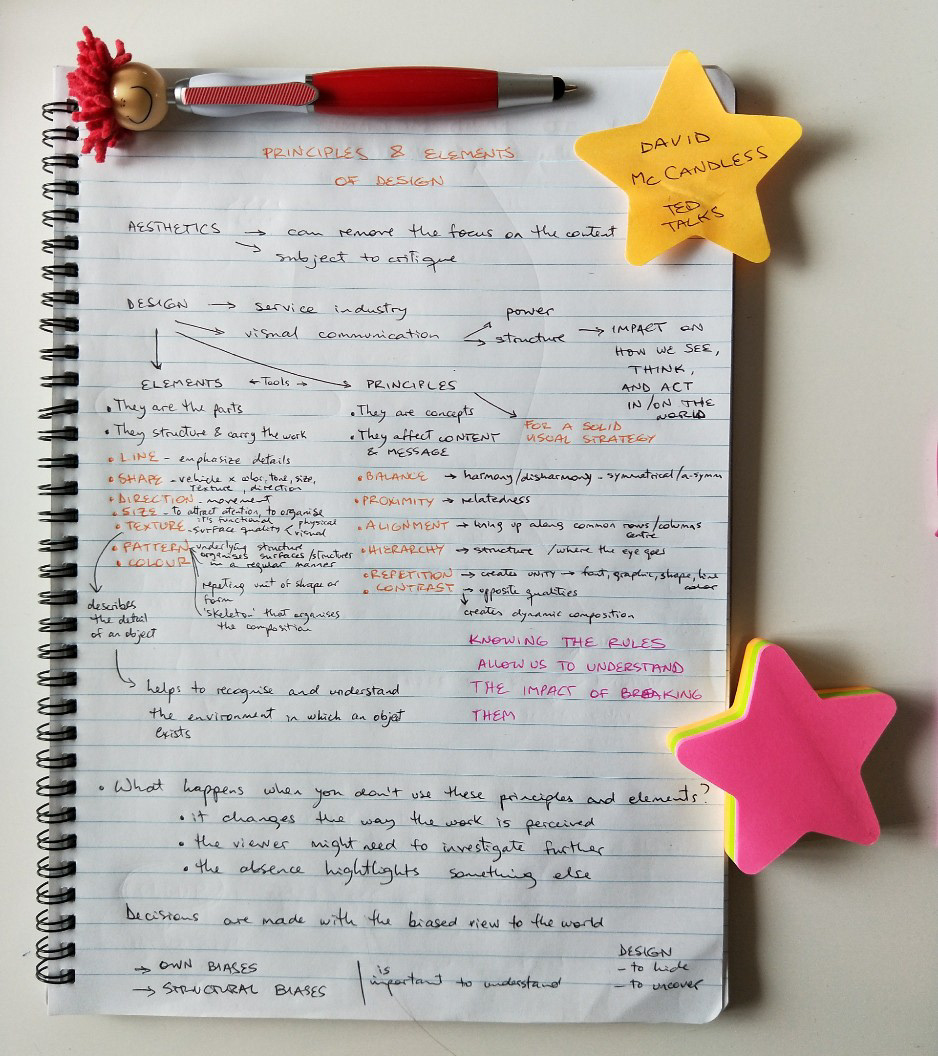 DAVID
McCANDLESS
TED
TALKS
PRINCIPLES & ELEMENTS
OF DESIGN
AESTHETICS → can remove the focus on the content
→ subject to critique
DESIGN → service industry
→ visual communication → power
→ structure → IMPACT ON
HOW WE SEE,
THINK,
AND ACT
IN/ON THE
WORLD
ELEMENTS ← Tools → PRINCIPLES
• They are the parts
• They structure & carry the work
• LINE - emphasize details
• SHAPE - vehicle x color, tone, size,
texture, direction
• DIRECTION - movement
• SIZE - to attract attention, to organise
it's functional
• TEXTURE - surface quality < physical
visual
• PATTERN underlying structure
organises surfaces/structures
in a regular manner
• COLOUR
repeting unit of shape or
form
'skeleton' that organises
the composition
describes
the detail
of an object
→ helps to recognise and understand
the environment in which an object
exists
• They are concepts
• They affect CONTENT
& MESSAGE
FOR A SOLID
VISUAL STRATEGY
• BALANCE → harmony/disharmony - symmetrical/a-symm
• PROXIMITY → relatedness
• ALIGNMENT → lining up along common rows/columns
centre
• HIERARCHY → structure / where the eye goes
• REPETITION → creates UNITY → font, graphic, shape, line
color
• CONTRAST → opposite qualities
creates dynamic composition
KNOWING THE RULES
ALLOW US TO UNDERSTAND
THE IMPACT OF BREAKING
THEM
• What happens when you don't use these principles and elements?
• it changes the way the work is perceived
• the viewer might need to investigate further
• the absence hightlights something else
Decisions are made with the biased view to the world
→ OWN BIASES
→ STRUCTURAL BIASES
is
important to understand
DESIGN
- to hide
- to uncover